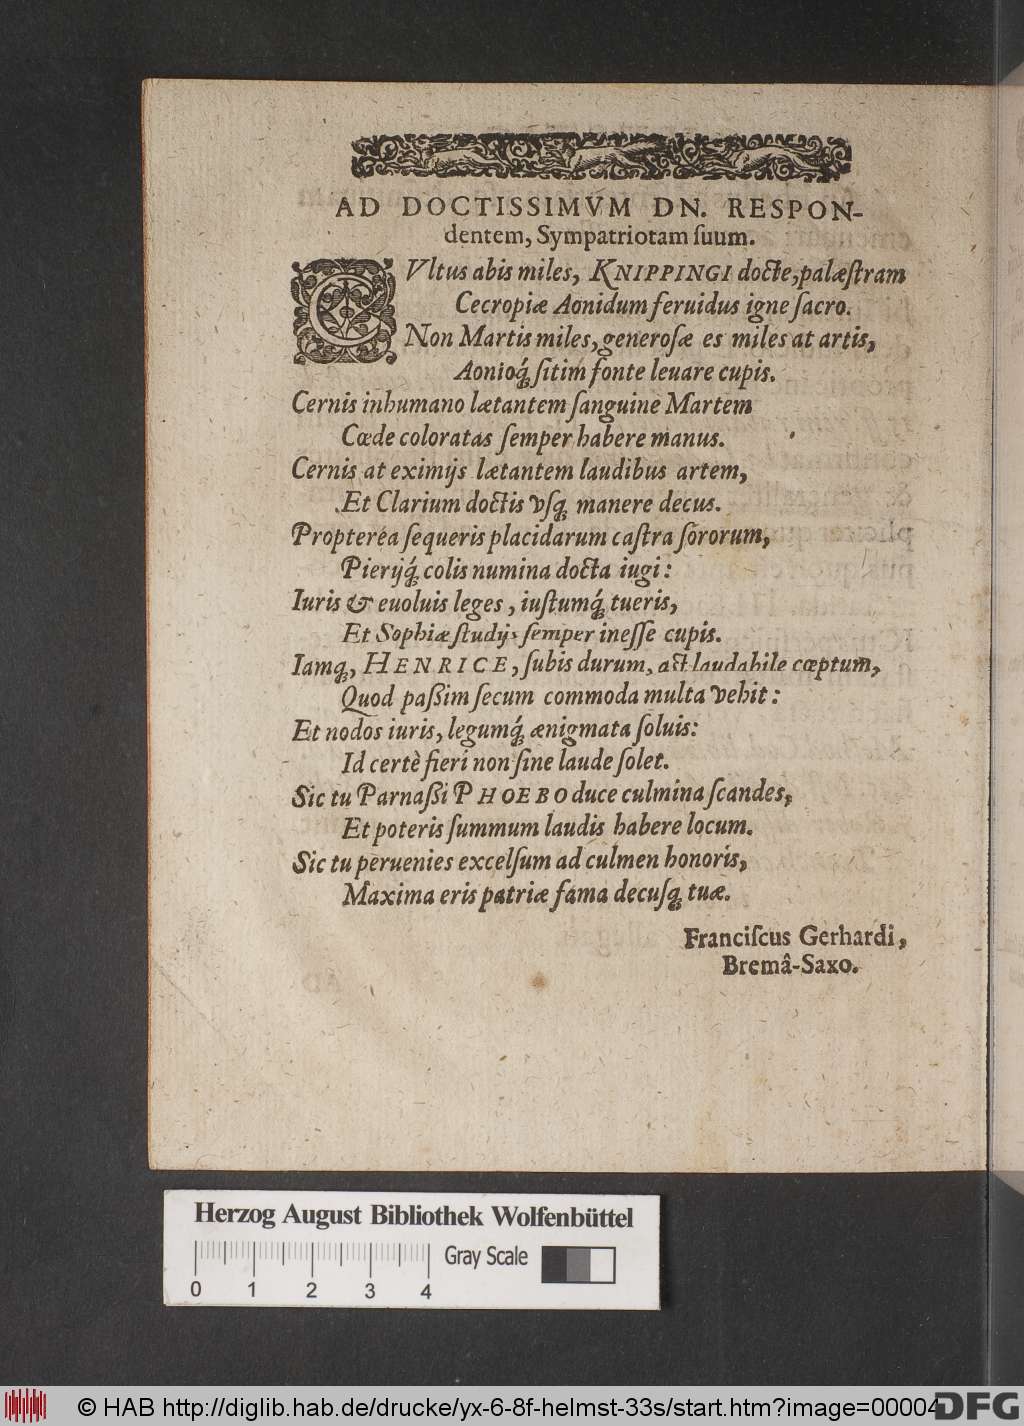 AD DOCTISSIMVM DN. RESPON-
dentem, Sympatriotam ſuum.
CVltus abis miles, KNIPPINGI docte, palæſtram
Cecropiæ Aonidum feruidus igne ſacro.
Non Martis miles, generoſæ es miles at artis,
Aonioq́ʒ ſitim fonte leuare cupis.
Cernis inhumano lætantem ſanguine Martem
Cæde coloratas ſemper habere manus.
Cernis at eximijs lætantem laudibus artem,
Et Clarium doctis vſqʒ manere decus.
Proptereà ſequeris placidarum caſtra ſororum,
Pierijq́ʒ colis numina docta iugi:
Iuris & euoluis leges, iuſtumq́ʒ tueris,
Et Sophiæ ſtudijs ſemper ineſſe cupis.
Iamqʒ, HENRICE, ſubis durum, aſt laudabile cœptum,
Quod paßim ſecum commoda multa vehit:
Et nodos iuris, legumq́ʒ ænigmata ſoluis:
Id certè fieri non ſine laude ſolet.
Sic tu Parnaßi PHOEBO duce culmina ſcandes,
Et poteris ſummum laudis habere locum.
Sic tu peruenies excelſum ad culmen honoris,
Maxima eris patriæ fama decuſqʒ tuæ.
Franciſcus Gerhardi,
Bremâ-Saxo.
Herzog August Bibliothek Wolfenbüttel
Gray Scale
0 1 2 3 4
© HAB http://diglib.hab.de/drucke/yx-6-8f-helmst-33s/start.htm?image=00004
DFG